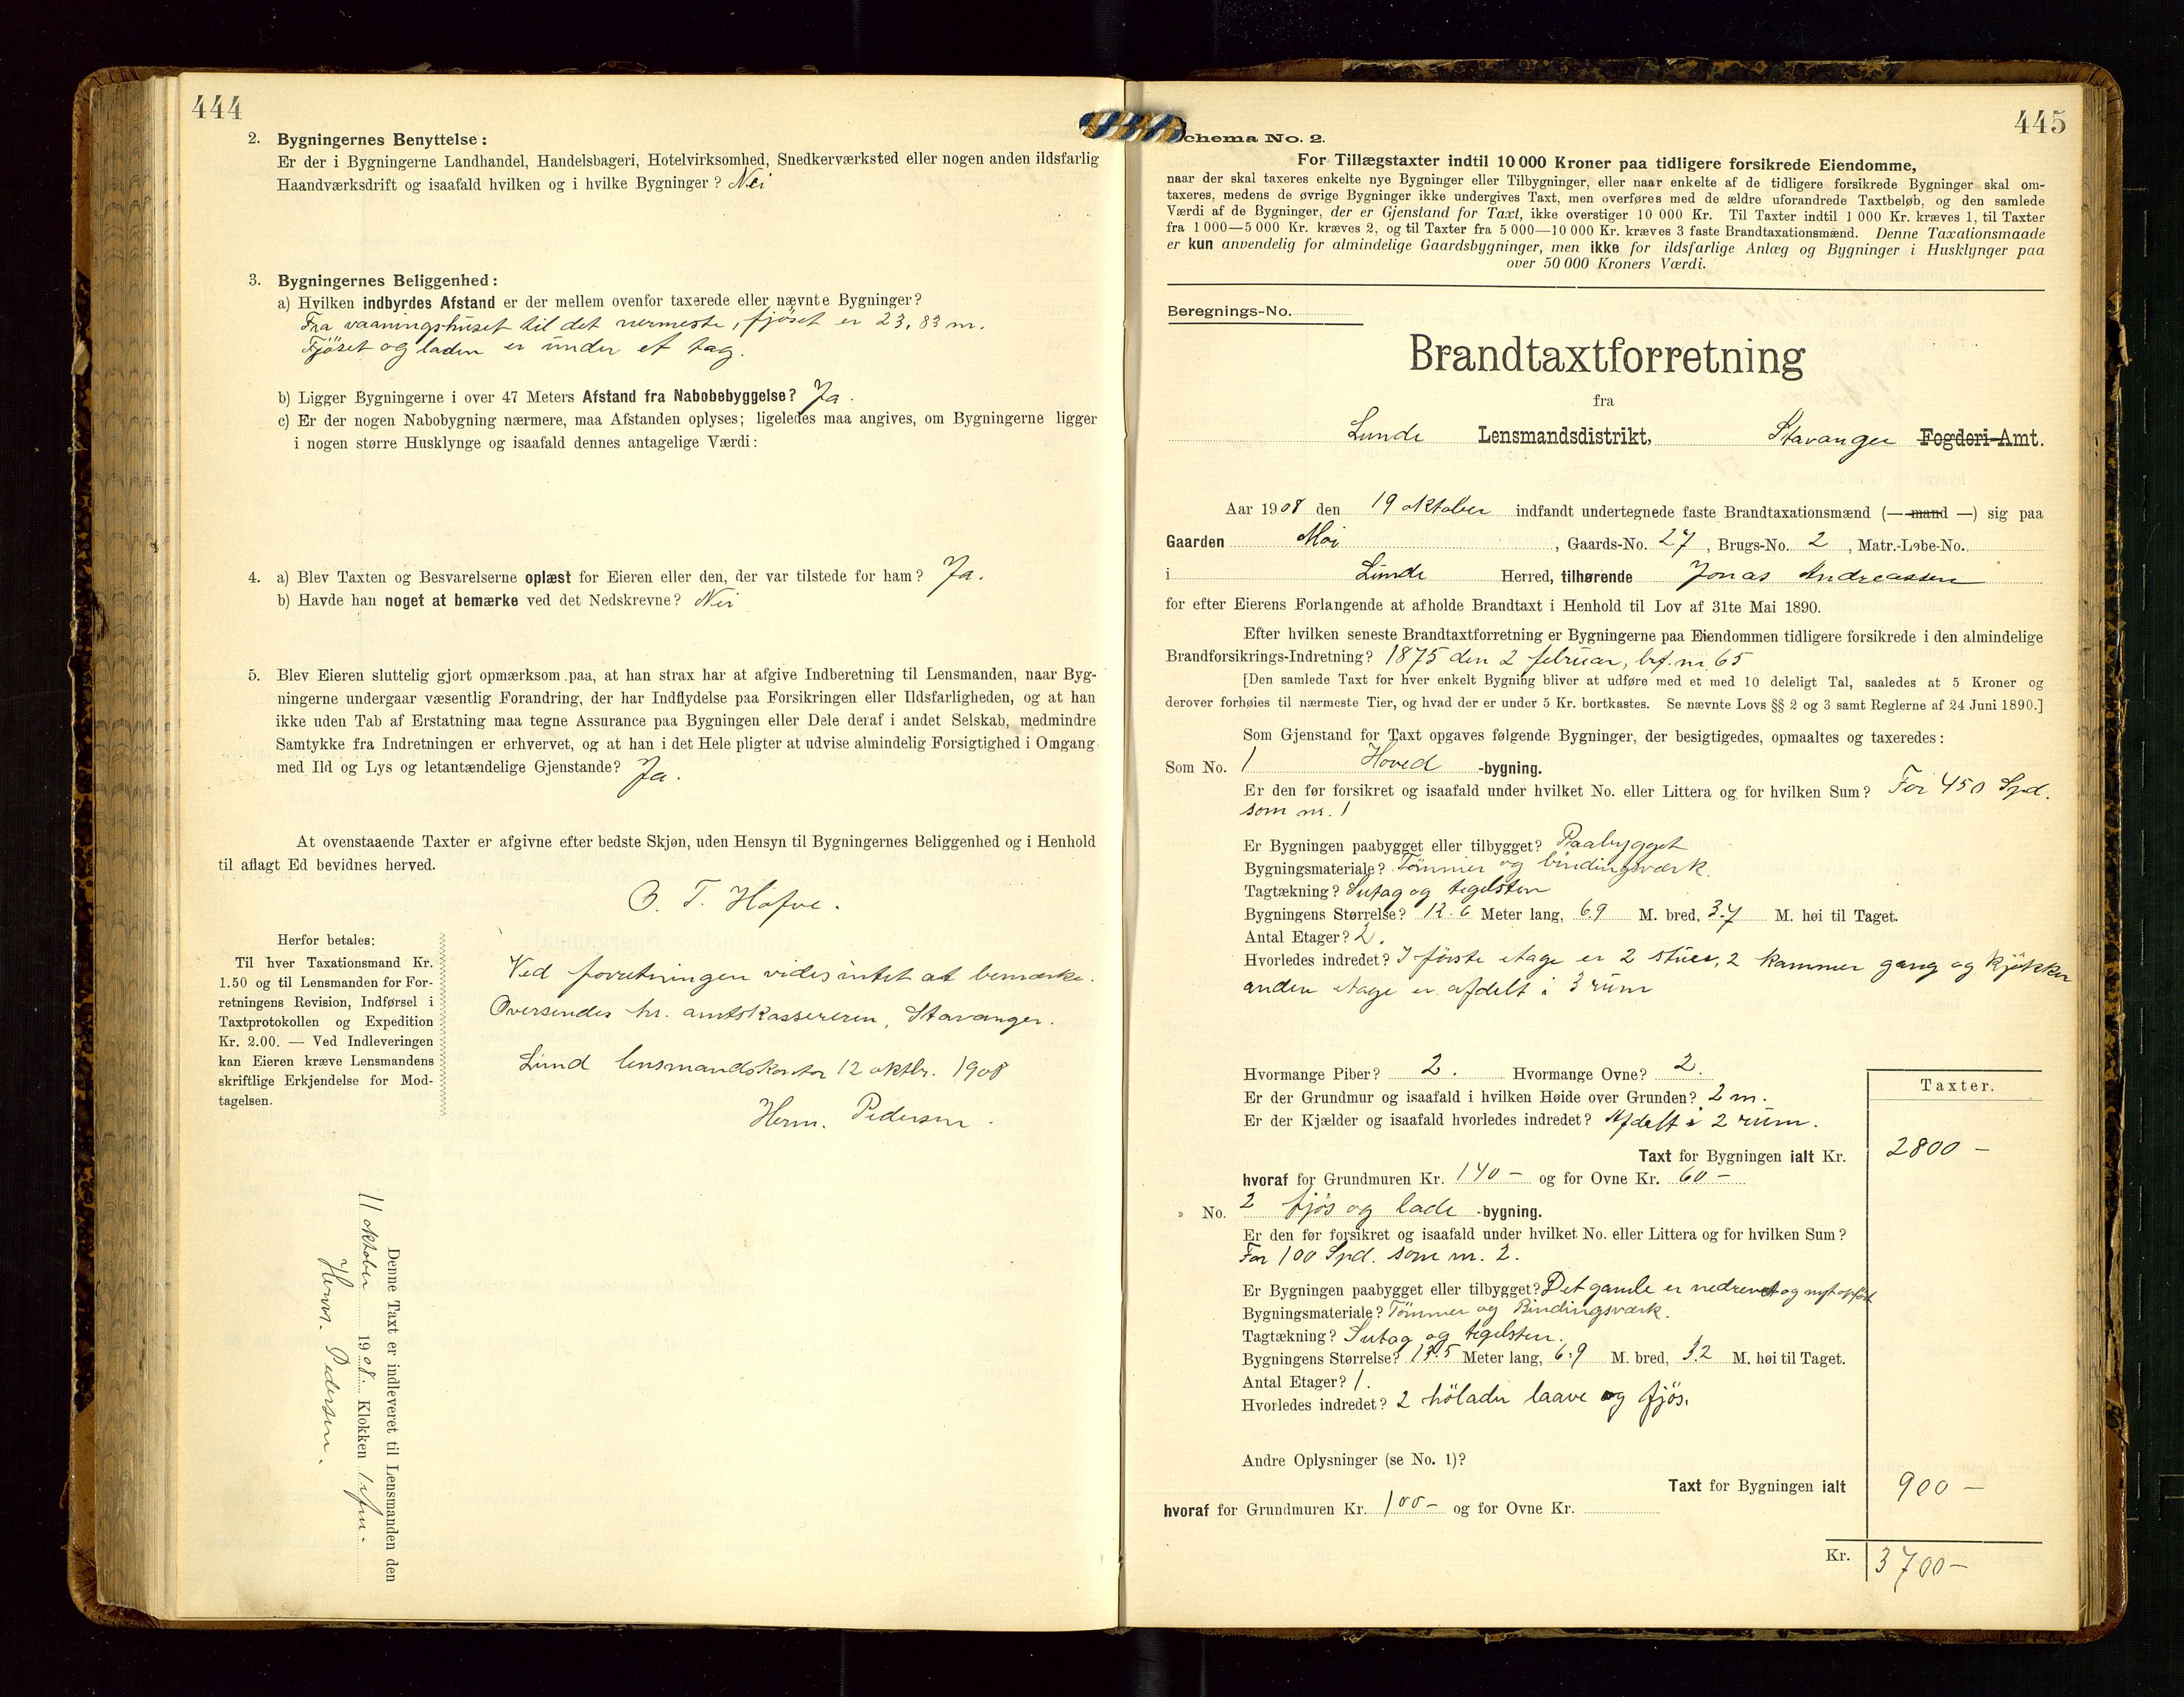 444
2. Bygningernes Benyttelse:
Er der i Bygningerne Landhandel, Handelsbageri, Hotelvirksomhed, Snedkerværksted eller nogen anden ildsfarlig
Haandværksdrift og isaafald hvilken og i hvilke Bygninger? Nei
3. Bygningernes Beliggenhed:
a) Hvilken indbyrdes Afstand er der mellem ovenfor taxerede eller nævnte Bygninger?
Fra vaaningshuset til det nermeste, fjöset er 23,83 m.
Fjöset og laden er under et tag.
b) Ligger Bygningerne i over 47 Meters Afstand fra Nabobebyggelse? Ja.
c) Er der nogen Nabobygning nærmere, maa Afstanden oplyses; ligeledes maa angives, om Bygningerne ligger
i nogen større Husklynge og isaafald dennes antagelige Værdi:
4. a) Blev Taxten og Besvarelserne oplæst for Eieren eller den, der var tilstede for ham? Ja.
b) Havde han noget at bemærke ved det Nedskrevne? Nei
5. Blev Eieren sluttelig gjort opmærksom paa, at han strax har at afgive Indberetning til Lensmanden, naar Byg-
ningerne undergaar væsentlig Forandring, der har Indflydelse paa Forsikringen eller Ildsfarligheden, og at han
ikke uden Tab af Erstatning maa tegne Assurance paa Bygningen eller Dele deraf i andet Selskab, medmindre
Samtykke fra Indretningen er erhvervet, og at han i det Hele pligter at udvise almindelig Forsigtighed i Omgang
med Ild og Lys og letantændelige Gjenstande? Ja.
At ovenstaaende Taxter er afgivne efter bedste Skjøn, uden Hensyn til Bygningernes Beliggenhed og i Henhold
til aflagt Ed bevidnes herved.
O. T. Hafve.
Herfor betales:
Til hver Taxationsmand Kr.
1.50 og til Lensmanden for For-
retningens Revision, Indførsel i
Taxtprotokollen og Expedition
Kr. 2.00. — Ved Indleveringen
kan Eieren kræve Lensmandens
skriftlige Erkjendelse for Mod-
tagelsen.
Ved forretningen vides intet at bemærke.
Oversendes hr. amtskassereren, Stavanger.
Lund lensmandskontor 12 oktbr. 1908
Herm. Pedersen.
Denne Taxt er indleveret til Lensmanden den
11 oktober 1908. Klokken
Herm. Pedersen.
445
chema No. 2.
For Tillægstaxter indtil 10 000 Kroner paa tidligere forsikrede Eiendomme,
naar der skal taxeres enkelte nye Bygninger eller Tilbygninger, eller naar enkelte af de tidligere forsikrede Bygninger skal om-
taxeres, medens de øvrige Bygninger ikke undergives Taxt, men overføres med de ældre uforandrede Taxtbeløb, og den samlede
Værdi af de Bygninger, der er Gjenstand for Taxt, ikke overstiger 10 000 Kr. Til Taxter indtil 1 000 Kr. kræves 1, til Taxter
fra 1 000—5 000 Kr. kræves 2, og til Taxter fra 5 000—10 000 Kr. kræves 3 faste Brandtaxationsmænd. Denne Taxationsmaade
er kun anvendelig for almindelige Gaardsbygninger, men ikke for ildsfarlige Anlæg og Bygninger i Husklynger paa
over 50 000 Kroners Værdi.
Beregnings-No.
Brandtaxtforretning
fra
Lunde Lensmandsdistrikt, Stavanger Fogderi-Amt.
Aar 1908 den 19 oktober indfandt undertegnede faste Brandtaxationsmænd (— mand —) sig paa
Gaarden Moi, Gaards-No. 27, Brugs-No. 2, Matr.-Løbe-No.
i Lunde Herred, tilhørende Jonas Andreassen
for efter Eierens Forlangende at afholde Brandtaxt i Henhold til Lov af 31te Mai 1890.
Efter hvilken seneste Brandtaxtforretning er Bygningerne paa Eiendommen tidligere forsikrede i den almindelige
Brandforsikrings-Indretning? 1875 den 2 februar, brf. nr. 65
[Den samlede Taxt for hver enkelt Bygning bliver at udføre med et med 10 deleligt Tal, saaledes at 5 Kroner og
derover forhøies til nærmeste Tier, og hvad der er under 5 Kr. bortkastes. Se nævnte Lovs §§ 2 og 3 samt Reglerne af 24 Juni 1890.]
Som Gjenstand for Taxt opgaves følgende Bygninger, der besigtigedes, opmaaltes og taxeredes:
Som No. 1 Hoved -bygning.
Er den før forsikret og isaafald under hvilket No. eller Littera og for hvilken Sum? For 450 Spd.
som nr. 1
Er Bygningen paabygget eller tilbygget? Paabygget
Bygningsmateriale? Tömmer og bindingsværk.
Tagtækning? Sutag og tegelsten
Bygningens Størrelse? 12.6 Meter lang, 6.9 M. bred, 3.7 M. høi til Taget.
Antal Etager? 2.
Hvorledes indredet? I förste etage er 2 stuer, 2 kammer gang og kjökken
anden etage er afdelt i 3 rum
Hvormange Piber? 2. Hvormange Ovne? 2.
Er der Grundmur og isaafald i hvilken Høide over Grunden? 2 m.
Er der Kjælder og isaafald hvorledes indredet? Afdelt i 2 rum.
Taxter.
Taxt for Bygningen ialt Kr. 2800 —
hvoraf for Grundmuren Kr. 140 — og for Ovne Kr. 60 —
» No. 2 fjös og lade -bygning.
Er den før forsikret og isaafald under hvilket No. eller Littera og for hvilken Sum?
For 100 Spd. som nr. 2.
Er Bygningen paabygget eller tilbygget? Det gamle er nedrevet og nyt opfört
Bygningsmateriale? Tömmer og Bindingsværk.
Tagtækning? Sutag og tegelsten.
Bygningens Størrelse? 13.5 Meter lang, 6.9 M. bred, 3.2 M. høi til Taget.
Antal Etager? 1.
Hvorledes indredet? 2 hölader laave og fjös.
Andre Oplysninger (se No. 1)?
Taxt for Bygningen ialt 900 —
hvoraf for Grundmuren Kr. 100 — og for Ovne Kr.
Kr. 3700 —